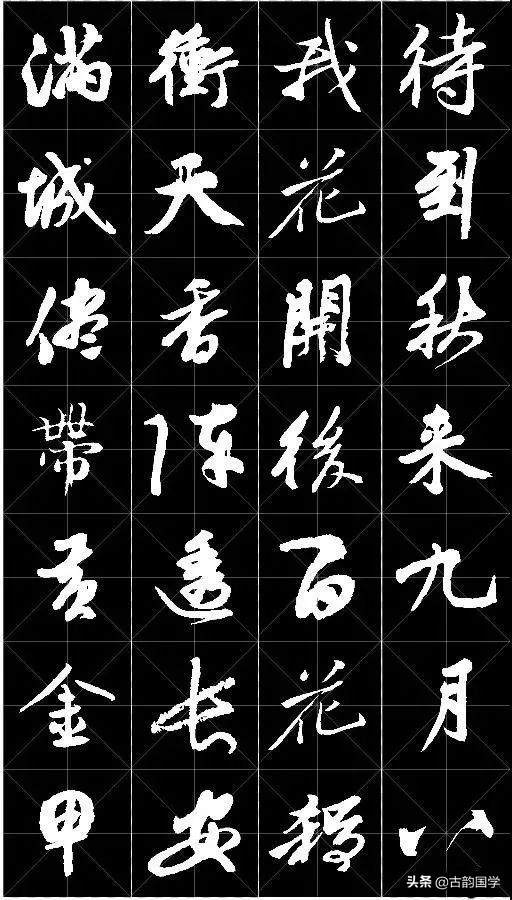 待到秋来九月八
我花開後百花殺
衝天香陣透長安
滿城儘帶黃金甲
头条 @古韵国学